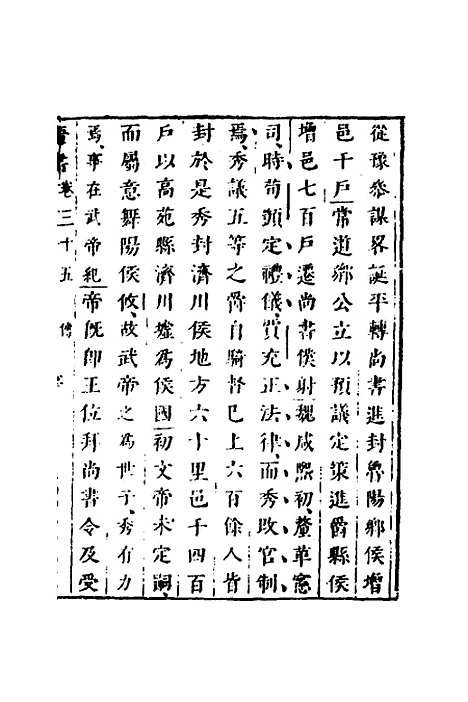 從豫參謀畧誕平轉尚書進封魯陽鄉侯增
邑千戶常道鄉公立以預議定策進爵縣侯
增邑七百戶遷尚書僕射魏咸熙初釐革憲
司時荀顗定禮儀賈充正法律而秀改官制
焉秀議五等之爵自騎督已上六百餘人皆
封於是秀封濟川侯地方六十里邑千四百
戶以高苑縣濟川墟爲侯國初文帝未定嗣
而屬意舞陽侯攸故武帝之爲世子秀有力
焉事在武帝紀帝旣卽王位拜尚書令及受
晉書卷三十五 傳